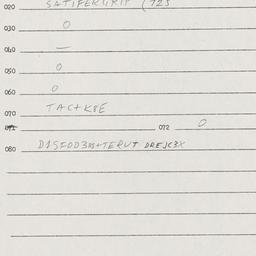 020 SATIFERGRIP (725
030 0
040 —
050 0
060 0
070 TACTK8E
071 072 0
080 D1SFOD3M+TERUT DREJC3X